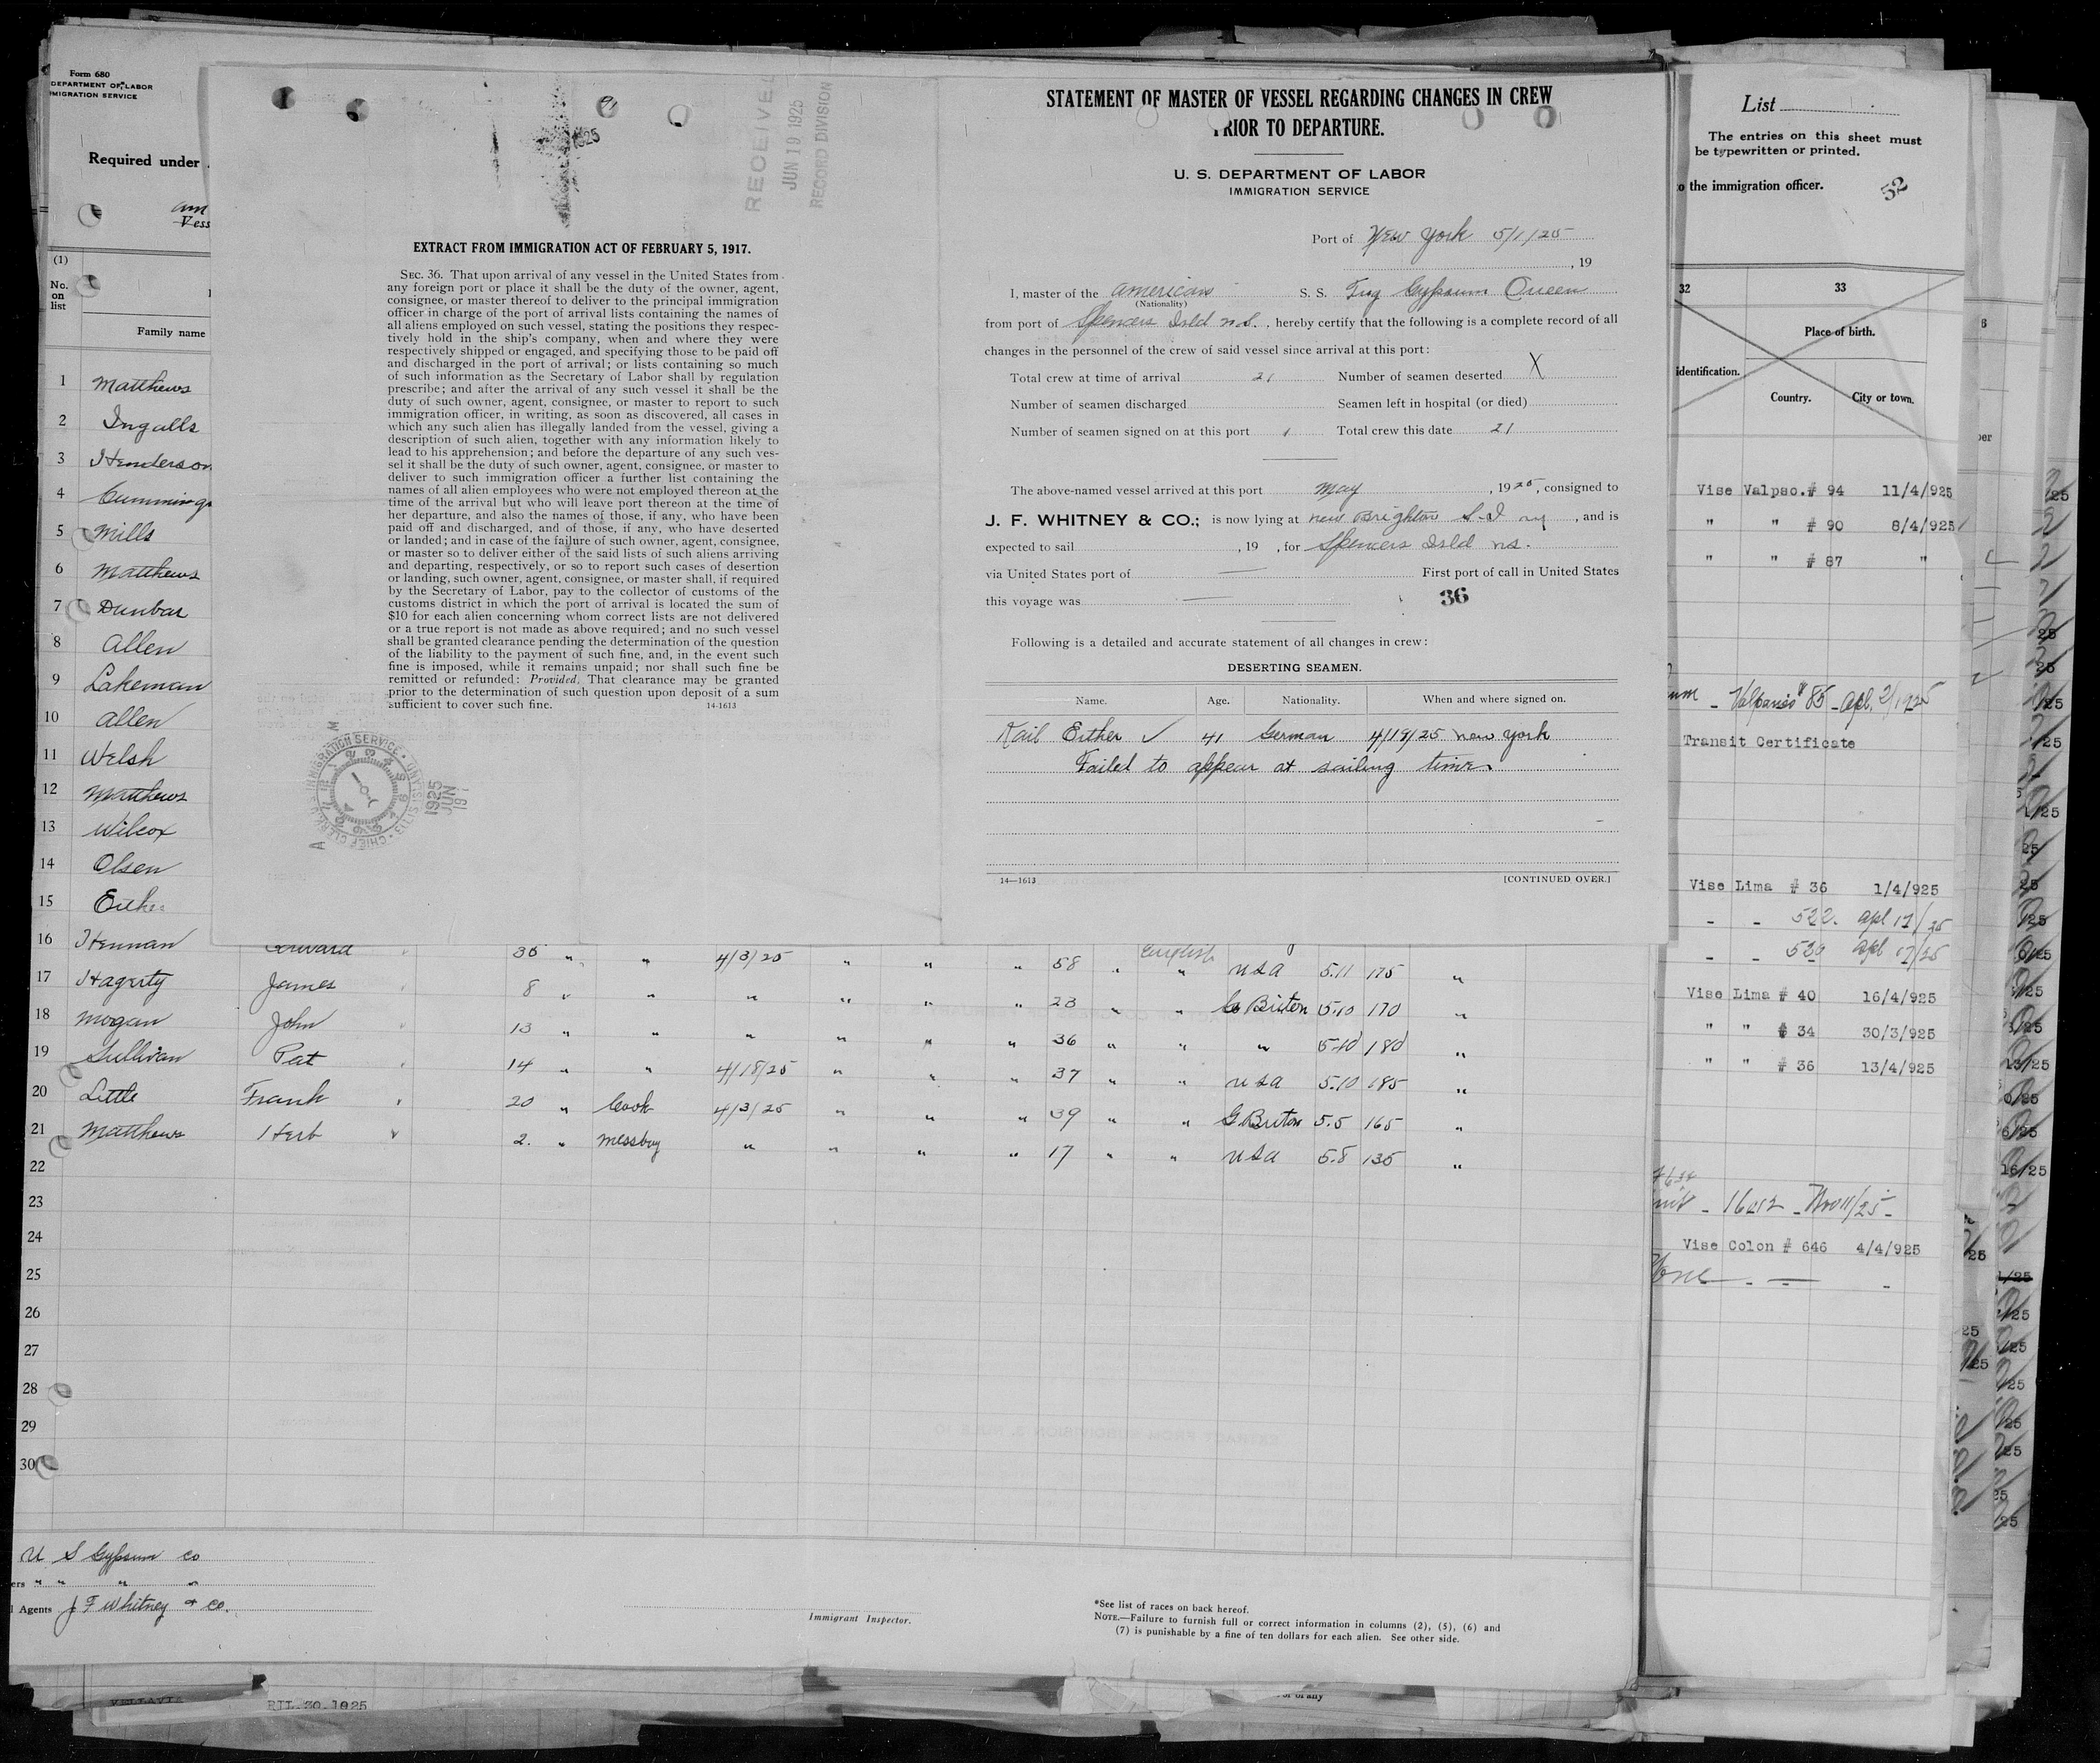 Form 680
DEPARTMENT OF LABOR
IMMIGRATION SERVICE
Required under
Vess
(1)
No. on list
Family name
1 Matthews
2 Ingalls
3 Henderson
4 Cummings
5 Mills
6 Matthews
7 Dunbar
8 Allen
9 Lakeman
10 Allen
11 Welsh
12 Matthews
13 Wilcox
14 Olsen
15 Either
RECEIVED
JUN 19 1925
RECORD DIVISION
EXTRACT FROM IMMIGRATION ACT OF FEBRUARY 5, 1917.
SEC. 36. That upon arrival of any vessel in the United States from
any foreign port or place it shall be the duty of the owner, agent,
consignee, or master thereof to deliver to the principal immigration
officer in charge of the port of arrival lists containing the names of
all aliens employed on such vessel, stating the positions they respec-
tively hold in the ship's company, when and where they were
respectively shipped or engaged, and specifying those to be paid off
and discharged in the port of arrival; or lists containing so much
of such information as the Secretary of Labor shall by regulation
prescribe; and after the arrival of any such vessel it shall be the
duty of such owner, agent, consignee, or master to report to such
immigration officer, in writing, as soon as discovered, all cases in
which any such alien has illegally landed from the vessel, giving a
description of such alien, together with any information likely to
lead to his apprehension; and before the departure of any such ves-
sel it shall be the duty of such owner, agent, consignee, or master to
deliver to such immigration officer a further list containing the
names of all alien employees who were not employed thereon at the
time of the arrival but who will leave port thereon at the time of
her departure, and also the names of those, if any, who have been
paid off and discharged, and of those, if any, who have deserted
or landed; and in case of the failure of such owner, agent, consignee,
or master so to deliver either of the said lists of such aliens arriving
and departing, respectively, or so to report such cases of desertion
or landing, such owner, agent, consignee, or master shall, if required
by the Secretary of Labor, pay to the collector of customs of the
customs district in which the port of arrival is located the sum of
$10 for each alien concerning whom correct lists are not delivered
or a true report is not made as above required; and no such vessel
shall be granted clearance pending the determination of the question
of the liability to the payment of such fine, and, in the event such
fine is imposed, while it remains unpaid; nor shall such fine be
remitted or refunded: Provided, That clearance may be granted
prior to the determination of such question upon deposit of a sum
sufficient to cover such fine. 14-1613
IMMIGRATION SERVICE
CHIEF CLERK
ELLIS ISLAND
1925 JUN 19
STATEMENT OF MASTER OF VESSEL REGARDING CHANGES IN CREW
PRIOR TO DEPARTURE.
U. S. DEPARTMENT OF LABOR
IMMIGRATION SERVICE
Port of New York 5/1/25
, 19
I, master of the American S. S. Tug Gypsum Queen
(Nationality)
from port of Spencers Isld n.S. , hereby certify that the following is a complete record of all
changes in the personnel of the crew of said vessel since arrival at this port:
Total crew at time of arrival 21 Number of seamen deserted X
Number of seamen discharged Seamen left in hospital (or died)
Number of seamen signed on at this port 1 Total crew this date 21
The above-named vessel arrived at this port May , 1925, consigned to
J. F. WHITNEY & CO.; is now lying at New Brighton S.I ny , and is
expected to sail , 19 , for Spencers Isld ns.
via United States port of — First port of call in United States
this voyage was —
36
Following is a detailed and accurate statement of all changes in crew:
DESERTING SEAMEN.
Name. Age. Nationality. When and where signed on.
Kail Either ✓ 41 German 4/19/25 New York
Failed to appear at sailing time
14—1613 [CONTINUED OVER.]
16 Hennan Edward 35 " " 4/3/25 " " " 58 " English " USA 5.11 175 "
17 Hagrity James 8 " " " " " " 23 " " G Briton 5.10 170 "
18 Mogan John 13 " " " " " " 36 " " " 5.10 180 "
19 Sullivan Pat 14 " " 4/18/25 " " " 37 " " USA 5.10 185 "
20 Little Frank 20 " Cook 4/3/25 " " " 39 " " G Briton 5.5 165 "
21 Matthews Herb 2. " Messboy " " " " 17 " " USA 5.8 135 "
22
23
24
25
26
27
28
29
30
U S Gypsum Co
ers " " " "
l Agents J F Whitney & Co.
Immigrant Inspector.
*See list of races on back hereof.
NOTE.—Failure to furnish full or correct information in columns (2), (5), (6) and
(7) is punishable by a fine of ten dollars for each alien. See other side.
List
The entries on this sheet must
be typewritten or printed.
to the immigration officer.
52
32 33
Place of birth.
identification.
Country. City or town.
Vise Valpso.# 94 11/4/925
" " # 90 8/4/925
" " # 87 "
Valparaiso #85 - Apl. 2/1925
Transit Certificate
Vise Lima # 36 1/4/925
- - 522. apl 17/25
- - 520 apl 17/25
Vise Lima # 40 16/4/925
" " # 34 30/3/925
" " # 36 13/4/925
- 16012 - Nov 11/25 -
Vise Colon # 646 4/4/925
None - —
RIL.30.1925